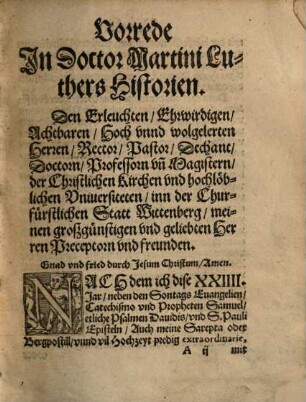 Vorrede
In Doctor Martini Lu-
thers Historien.
Den Erleuchten / Ehrwirdigen /
Achtbaren / Hoch vnnd wolgelerten
Herren / Rector / Pastor / Dechant /
Doctorn / Professorn vn̄ Magistern /
der Christlichen Kirchen vnd hochlöb-
lichen Vniuersiteten / inn der Chur-
fürstlichen Statt Wittenberg / mei-
nen großgünstigen vnd geliebten Her
ren Preceptorn vnd freunden.
Gnad vnd fried durch Jesum Christum / Amen.
NACH dem ich dise XXIIII.
Jar / neben den Sontags Euangelien /
Catechismo vnd Propheten Samuel /
etliche Psalmen Dauidis / vnd S. Pauli
Episteln / Auch meine Sarepta oder
Bergpostill / vund vil Hochzeyt predig extraordinarie,
A ij mit